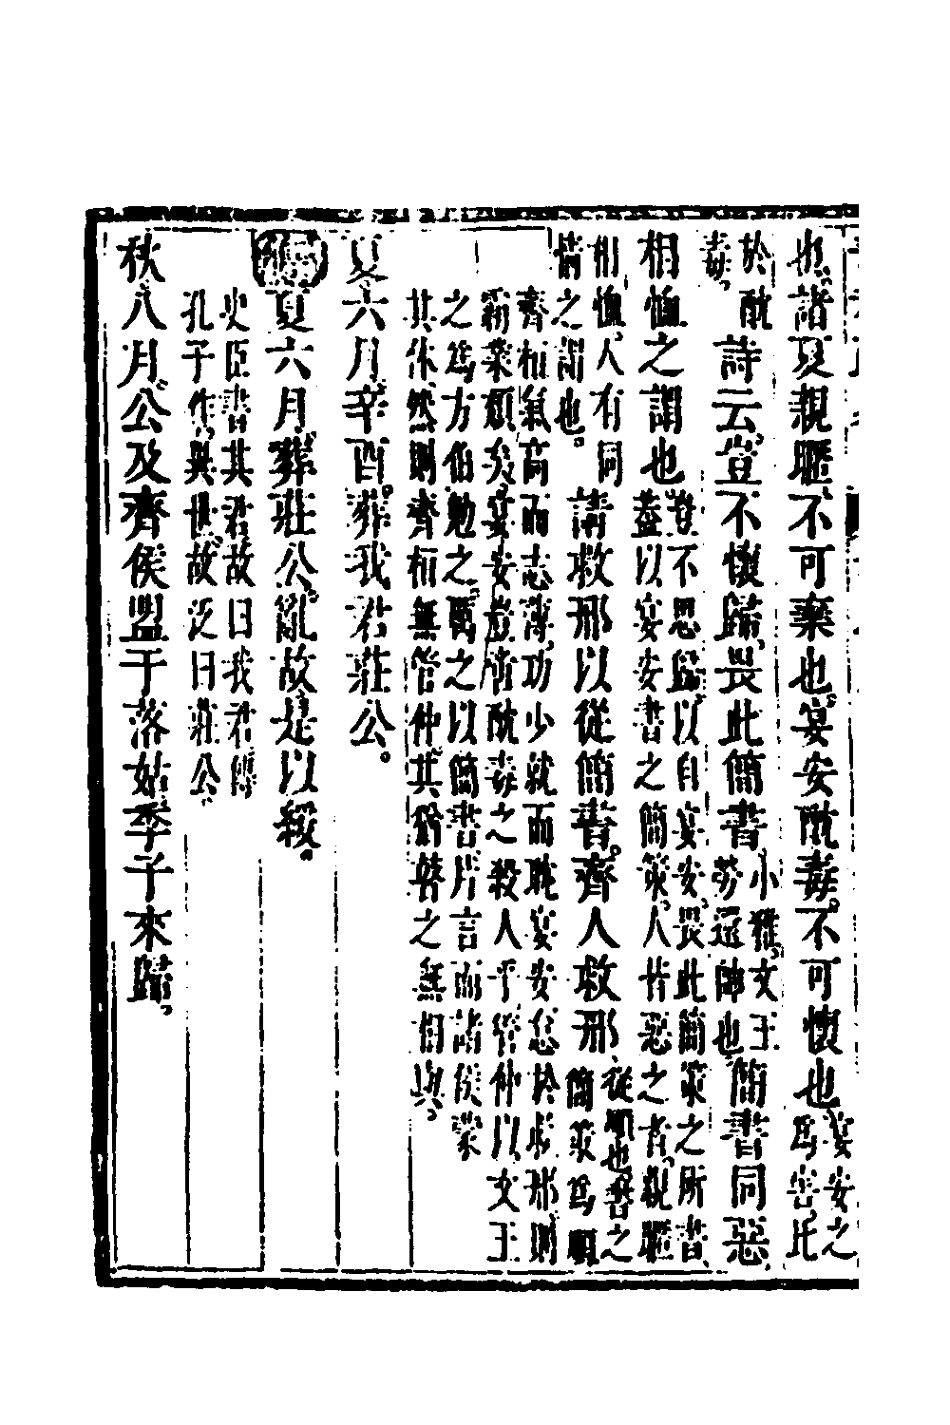 也諸夏親暱不可棄也宴安酖毒不可懷也宴安之
爲害比
於酖
毒詩云豈不懷歸畏此簡書小雅文王
勞還帥也簡書同惡
相恤之謂也豈不思歸以自宴安畏此簡策之所書
蓋以宴安書之簡策人皆惡之者親暱
相恤人有同
情之謂也請救邢以從簡書齊人救邢從順也書之
簡策爲順
齊桓氣高而志薄功少就而耽宴安怠於救邢則
霸業頹矣宴安豈啻酖毒之殺人乎管仲以文王
之爲方伯勉之厲之以簡書片言而諸侯蒙
其休然則齊桓無管仲其猶瞽之無相與
夏六月辛酉葬我君莊公
夏六月葬莊公亂故是以緩
史臣書其君故曰我君傳
孔子作與世故泛曰莊公
秋八月公及齊侯盟于落姑季子來歸